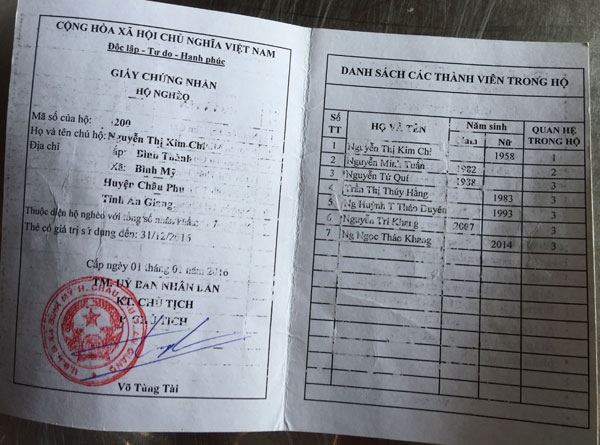 CỘNG HÒA XÃ HỘI CHỦ NGHĨA VIỆT NAM
Độc lập - Tự do - Hạnh phúc
GIẤY CHỨNG NHẬN
HỘ NGHÈO
Mã số của hộ: 200
Họ và tên chủ hộ: Nguyễn Thị Kim Chi
Địa chỉ ấp: Bình Thành
Xã: Bình Mỹ
Huyện Châu Phú
Tỉnh An Giang
Thuộc diện hộ nghèo với tổng số nhân khẩu: 7
Thẻ có giá trị sử dụng đến: 31/12/2016
Cấp ngày 01 tháng 01 năm 2016
TM. UỶ BAN NHÂN DÂN
KT. CHỦ TỊCH
CHỦ TỊCH
Võ Tùng Tài
DANH SÁCH CÁC THÀNH VIÊN TRONG HỘ
Số TT HỌ VÀ TÊN Năm sinh Nam Nữ QUAN HỆ TRONG HỘ
1 Nguyễn Thị Kim Chi 1958 1
2 Nguyễn Minh Tuấn 1982 3
3 Nguyễn Tứ Quí 1988 3
4 Trần Thị Thúy Hằng 1983 3
5 Ng Huỳnh T Thảo Duyên 1993 3
6 Nguyễn Trí Khang 2007 3
7 Ng Ngọc Thảo Khang 2014 3